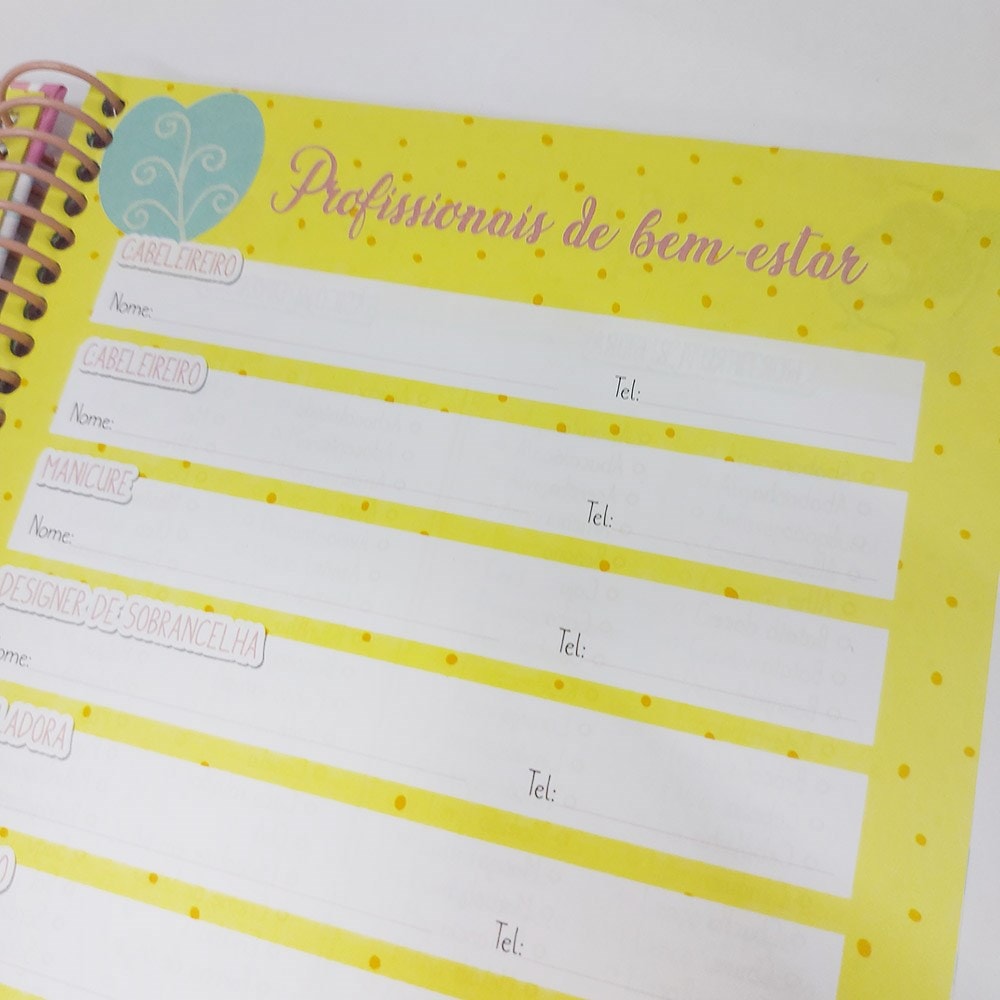 Profissionais de bem-estar
CABELEIREIRO
Nome:
Tel:
CABELEIREIRO
Nome:
Tel:
MANICURE
Nome:
Tel:
DESIGNER DE SOBRANCELHA
ome:
Tel:
LADORA
Tel:
O